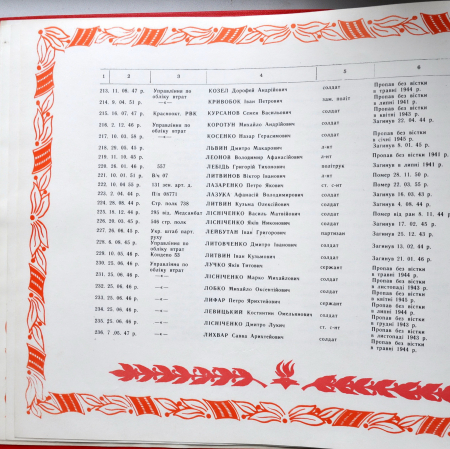 1 2 3 4 5 6
213. 11. 08. 47 р. Управління по обліку втрат КОЗЕЛ Дорофей Андрійович солдат Пропав без вістки в травні 1944 р.
214. 9. 04. 51 р. —«— КРИВОБОК Іван Петрович зам. політ Пропав без вістки в липні 1941 р.
215. 16. 07. 47 р. Краснокут. РВК КУРСАНОВ Семен Васильович солдат Пропав без вістки в квітні 1943 р.
216. 2. 12. 46 р. Управління по обліку втрат КОРОТУН Михайло Андрійович солдат Загинув 22. 04. 44 р.
217. 10. 03. 56 р. —«— КОСЕНКО Назар Герасимович солдат Пропав без вістки в січні 1945 р.
218. 29. 03. 45 р. ЛЬВИН Дмитро Макарович л-нт Загинув 8. 01. 45 р.
219. 11. 10. 45 р. ЛЕОНОВ Володимир Афанасійович л-нт Пропав без вістки 1941 р.
220. 26. 01. 46 р. 557 ЛЕБЕДЬ Григорій Тихонович політрук Загинув в липні 1941 р.
221. 10. 01. 51 р. В/ч 07 ЛИТВИНОВ Віктор Іванович л-нт Помер 26. 11. 50 р.
222. 10. 04 55 р. 131 зен. арт. д. ЛАЗАРЕНКО Петро Якович ст. с-нт Помер 22. 03. 55 р.
223. 2. 04. 44 р. П/п 06771 ЛАЗУКА Афанасій Володимирович солдат Загинув 16. 03. 43 р.
224. 28. 08. 44 р. Стр. полк 738 ЛИТВИН Кузьма Олексійович солдат Загинув 4. 08. 44 р.
225. 16. 12. 44 р. 795 від. Механбат ЛІСНІЧЕНКО Василь Матвійович солдат Помер від ран 8. 11. 44
226. 20. 03. 45 р. 586 стр. полк ЛІСНІЧЕНКО Яків Никонович солдат Загинув 17. 02. 45 р.
227. 26. 08. 45 р. Укр. штаб парт. руху ЛЕЙБУТАН Іван Григорович партизан Загинув 25. 12. 43 р.
228. 6. 08. 45 р. Управління по обліку втрат ЛИТОВЧЕНКО Дмитро Іванович солдат Загинув 13. 02. 44 р.
229. 10. 05. 46 р. 53 ЛИТВИН Іван Кузьмович солдат Загинув 21. 01. 46 р.
230. 25. 06. 46 р. Управління по обліку втрат ЛУЧКО Яків Титович сержант Пропав без вістки в травні 1944 р.
231. 25. 06. 46 р. —«— ЛІСНІЧЕНКО Марко Михайлович солдат Пропав без вістки в листопаді 1943 р.
232. 25. 06. 46 р. —«— ЛОБКО Михайло Оксентійович солдат Пропав без вістки в квітні 1945 р.
233. 25. 06. 46 р. —«— ЛИФАР Петро Ярмтейович сержант Пропав без вістки в липні 1944 р.
234. 25. 06. 46 р. —«— ЛЕВИЦЬКИЙ Костянтин Омелянович солдат Пропав без вістки в грудні 1943 р.
235. 25. 06. 46 р. —«— ЛІСНІЧЕНКО Дмитро Лукич ст. с-нт Пропав без вістки в листопаді 1943 р.
236. 7. 06. 47 р. —«— ЛИХВАР Савва Аркалейович солдат Пропав без вістки в травні 1944 р.